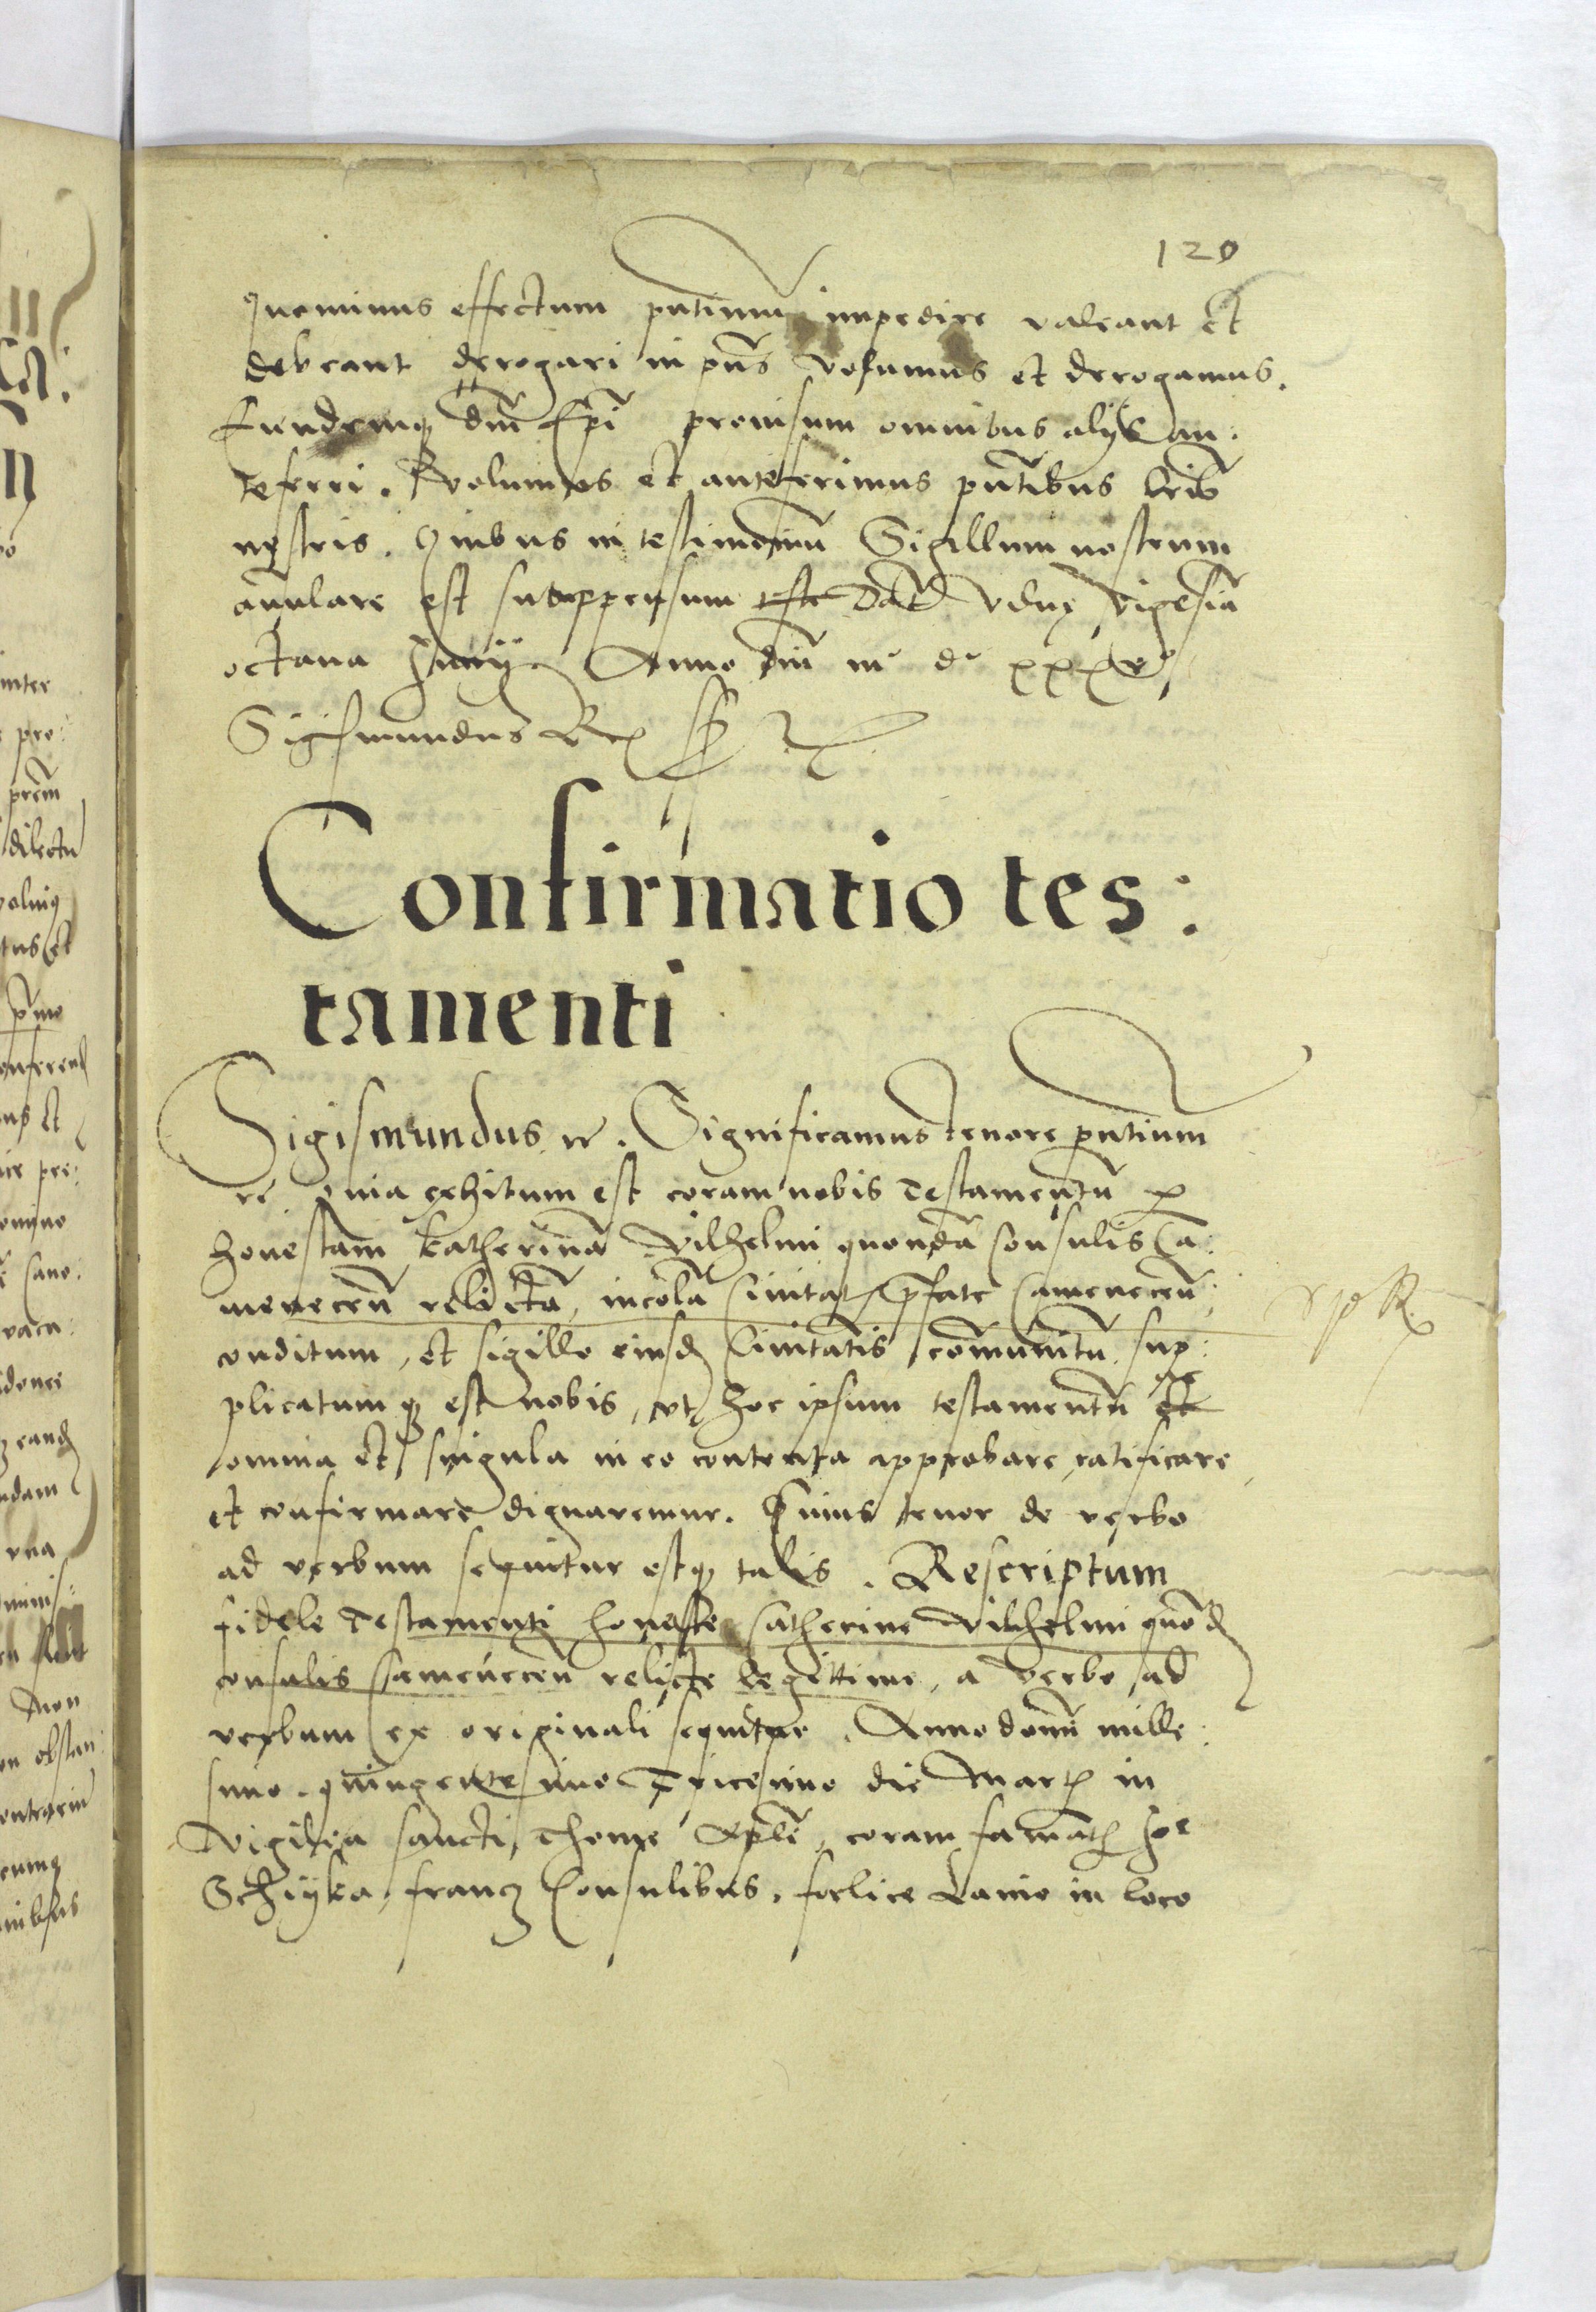 120
quominus effectum pntium impedire valeant et
debeant derogari in pns volumus et derogamus.
Eundemq dm Epi prouisum omnibus alys an:
teferri. volumus et anteferimus pntibus lris
nostris. Quibus in testimonium Sigillum nostrum
annulare est subappensum Dat vilne vigesia
octaua Junij. Anno dni mº dº xxxvº
Sigismundus Rex
Confirmatio tes:
tamenti
Sigismundus etc. Significamus tenore pntium
etc quia exhitum est coram nobis Testamentu p
honestam Katherina Vilhelmi quonda Consulis Ca:
menecen relicta, incola Ciuitat prefate Camenecen,
conditum, et sigillo eiusd Ciuitatis comunitu. sup:
plicatumq est nobis, vt hoc ipsum testamentu et
omnia et singula in eo contenta approbare ratificare
et confirmare dignaremur. Cuius tenor de verbo
ad verbum sequitur estq talis. Rescriptum
fidele Testamenti honeste Catherine Vilhelmi quond
consulis Camenecen relicte legittime, a verbo ad
verbum ex originali sequitur. Anno domi mille:
simo. quingentesimo Tricesimo die Mart in
vigilia sancti Thome Apli, coram famat
Schijka, francz Consulibus, foelice Lanio in loco